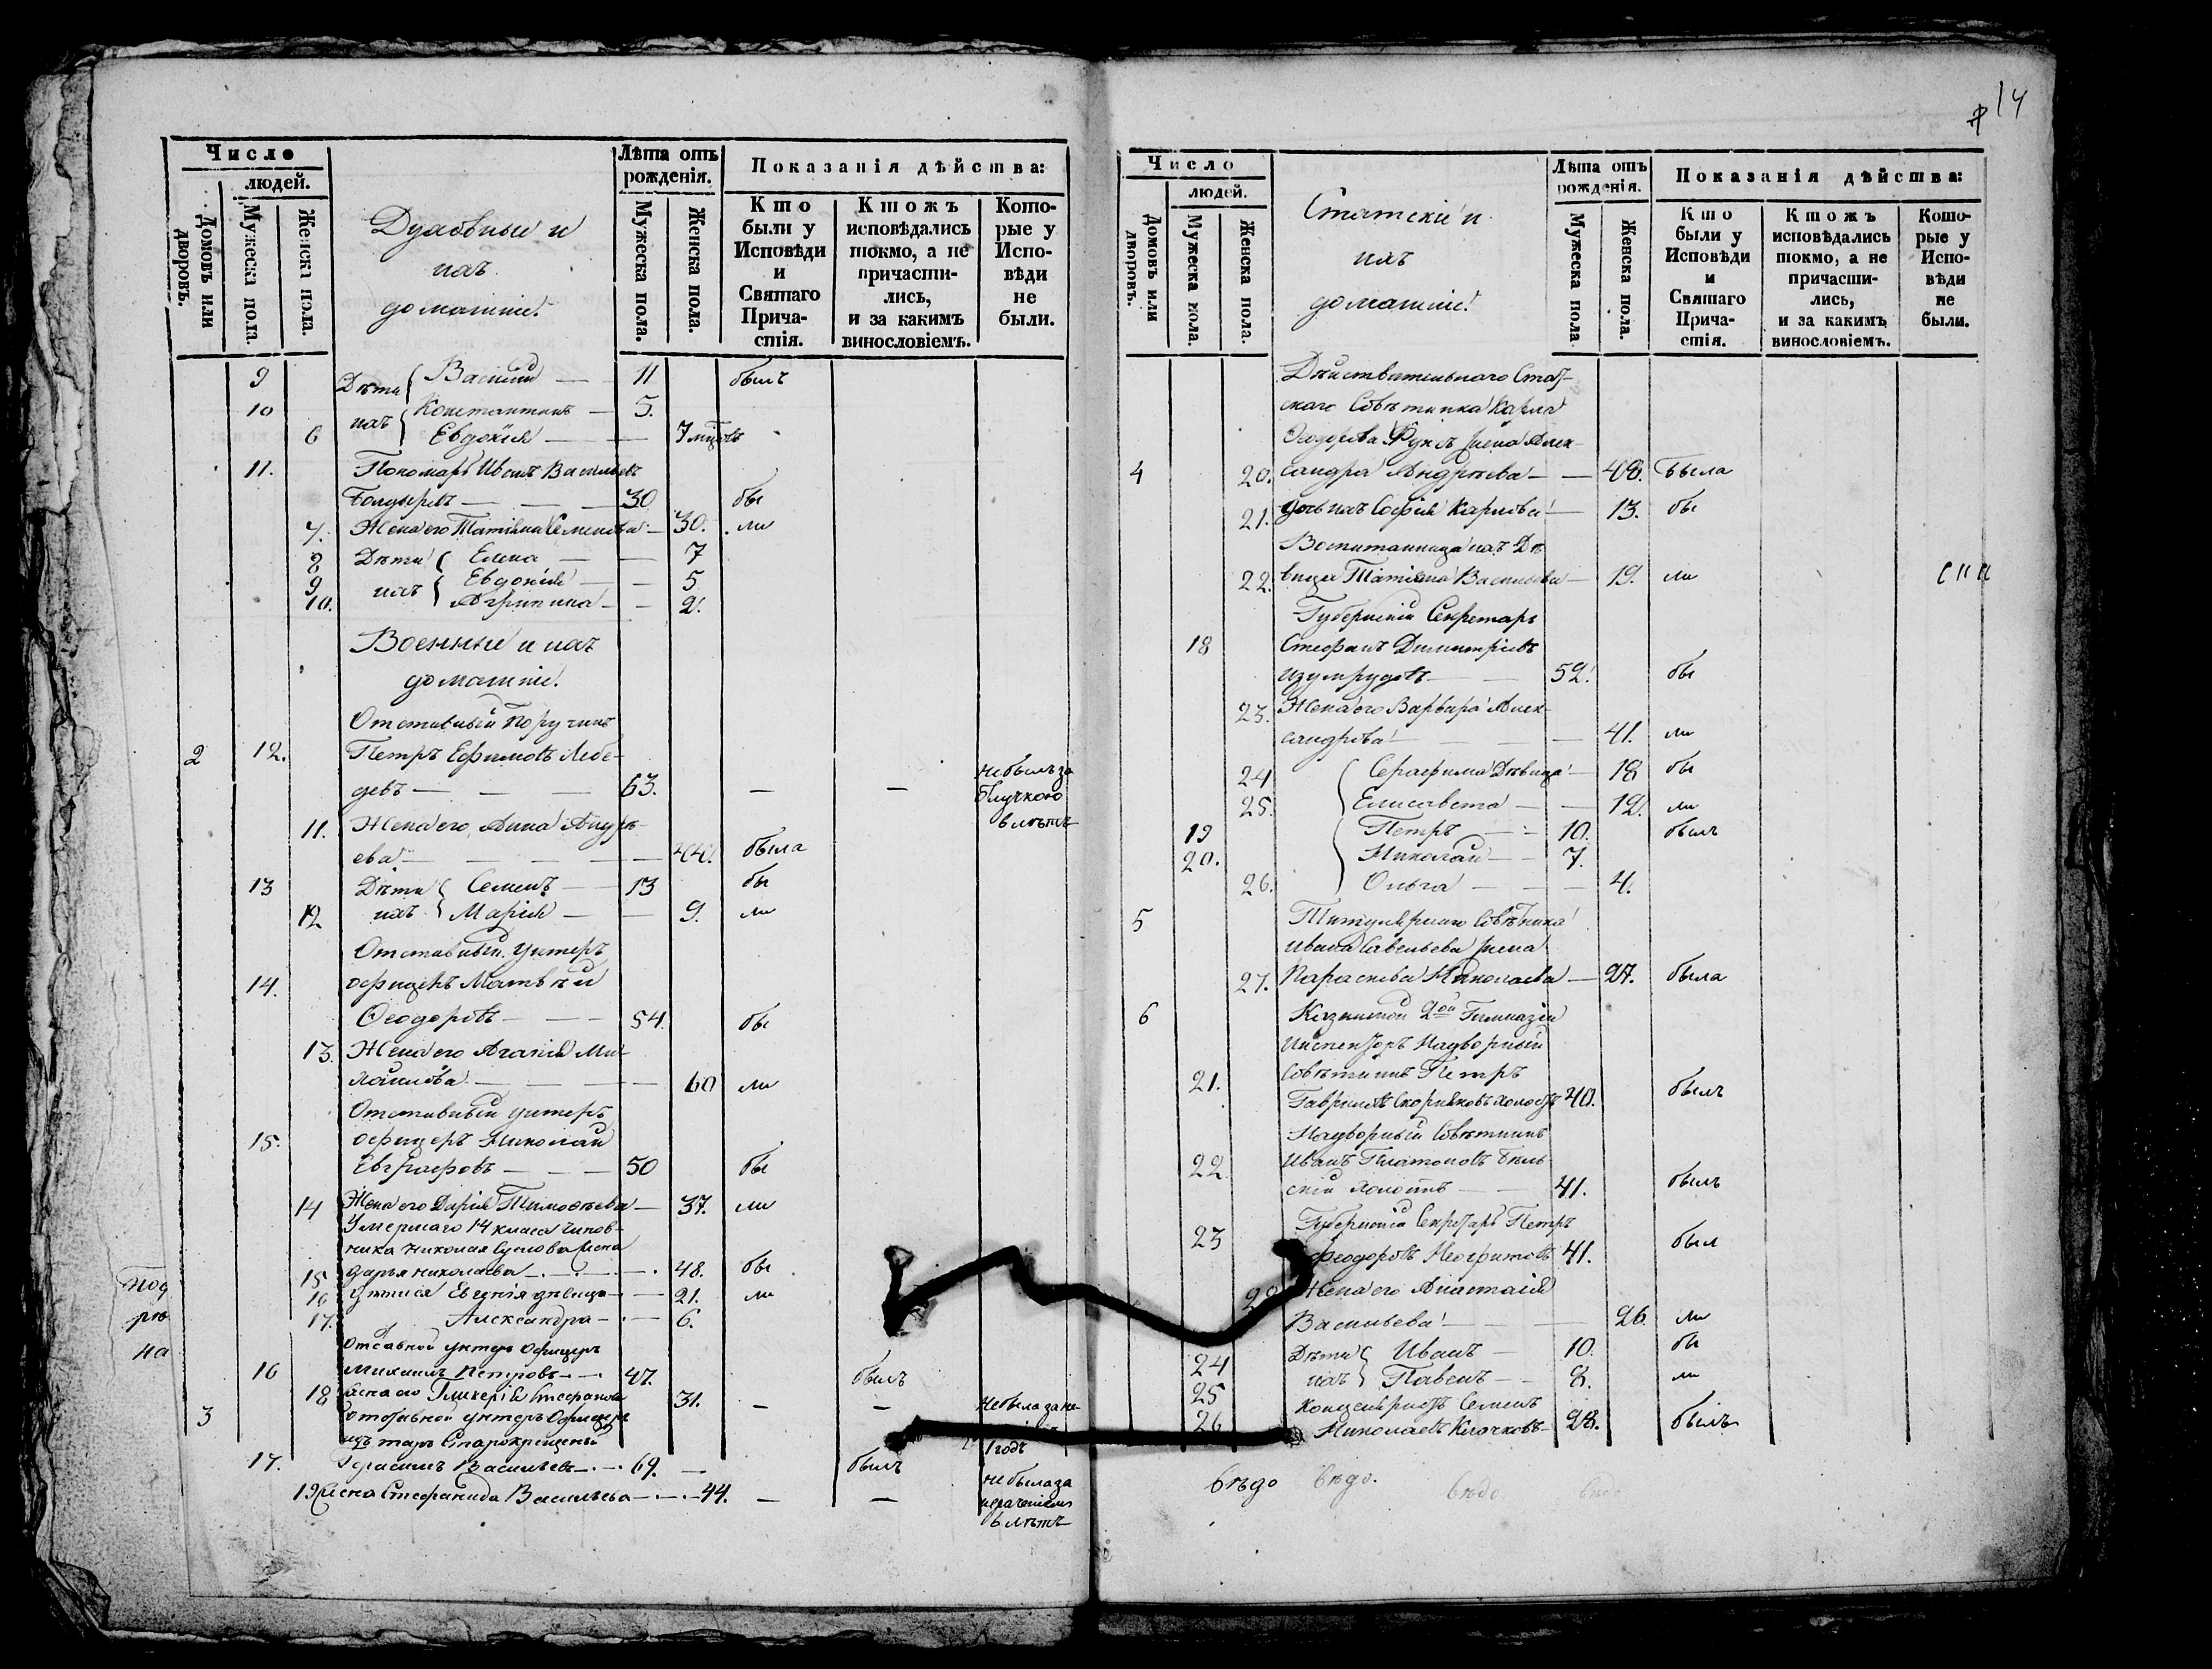 Число
людей.
Домовъ или дворовъ.
Мужеска пола.
Женска пола.
Духовные и
ихъ
домашніе.
Лѣта отъ рожденія.
Мужеска пола.
Женска пола.
Показанія дѣйства:
Кто были у Исповѣди и Святаго Причастія.
Ктожъ исповѣдались токмо, а не причастились, и за какимъ винословіемъ.
Которые у Исповѣди не были.
9 Дѣти Василій — 11 былъ
10 ихъ Константинъ — 5.
6 Евдокія — 7 мцовъ
11. Пономарь Иванъ Васильевъ
— 30 бы
7. Жена его Татіана Семенова — 30. ли
8 Дѣти Елена — 7
9 ихъ Евдокія — 5
10. Агрипина — 2.
Военные и ихъ
домашніе.
Отставный Поручикъ
2 12. Петръ Ефимовъ Лебе-
девъ — 63. — — не былъ за отлучкою
11. Жена его Анна Андрѣ- в лѣтъ
ева — 44. была
13 Дѣти Семенъ — 13 бы
12 ихъ Марія — 9. ли
Отставный унтеръ
14. офицеръ Матвѣй
Ѳеодоровъ — 54. бы
13. Жена его Агапія Ми-
хайлова — 60 ли
Отставный унтеръ
15. офицеръ Николай
Евграфовъ — 50 бы
14 Жена его Дарія Тимоѳеева — 37. ли
Умершаго 14 класа чинов-
ника Николая Суслова жена
15 Дарья Николаева — 48. бы
16 Евгенія дѣвица — 21. ли
17. Александра — 6.
под
рѣ
на
Отсавной унтеръ офицеръ
16 Михаилъ Петровъ — 47. былъ
18 жена его Гликерія Стефанова 31. — — не была за не-
3 Отставной унтеръ офицеръ
изъ татаръ Старокрещеный 1 годъ
17. Герасимъ Васильевъ — 69. — былъ
19 жена Стефанида Васильева — 44. — — не была за нерачениемъ в лѣтъ
14
Число
людей.
Домовъ или дворовъ.
Мужеска пола.
Женска пола.
Статскіе и
ихъ
домашніе.
Лѣта отъ рожденія.
Мужеска пола
Женска пола.
Показанія дѣйства:
Кто были у Исповѣди и Святаго Причастія.
Ктожъ исповѣдались токмо, а не причастились, и за какимъ винословіемъ.
Которые у Исповѣди не были.
Дѣйствительнаго Стат-
скаго Совѣтника Карла
Ѳеодорова Фуксъ жена Алек-
4 20. сандра Андрѣева — 48. была
21. дочь ихъ Софія Карлова — 13. бы
Воспитанница ихъ Дѣ-
22. вица Татіана Васильева — 19. ли
Губернскій Секретарь
18 Стефанъ Димитріевъ
Изумрудовъ — 52. бы
23. Жена его Варвара Алек-
сандрова — 41. ли
24 Серафима Дѣвица — 18 бы
25. Елисавета — 12. ли
19 Петръ — 10. былъ
20. Николай — 7.
26. Ольга — 4.
5 Титулярнаго Совѣтника
Ивана Савельева жена
27. Параскева Николаева — 27. была
6 Казанской 2ой Гимназіи
Инспекторъ Надворный
21. Совѣтникъ Петръ
Гавриловъ Скорняковъ холостъ 40. былъ
Надворный Совѣтникъ
22 Иванъ Платоновъ Бѣль-
скій холостъ — 41. былъ
Губернскій Секретарь Петръ
23 Ѳеодоровъ 41. был
28 Жена его Анастасія
Васильева — 26. ли
24 Дѣти Иванъ — 10. бы
25 ихъ Павелъ — 8. ли
Концеляристъ Семенъ
26 Николаевъ Клочковъ — 28. былъ
вѣдо вѣдо. вѣдо вѣдо